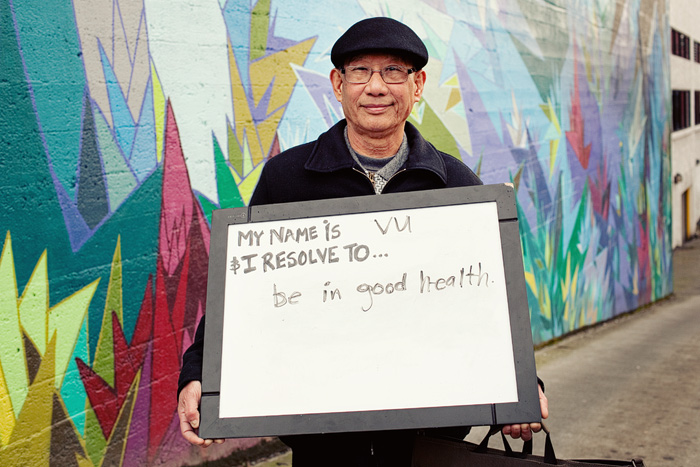 MY NAME iS VU
& I RESOLVE TO...
be in good health.